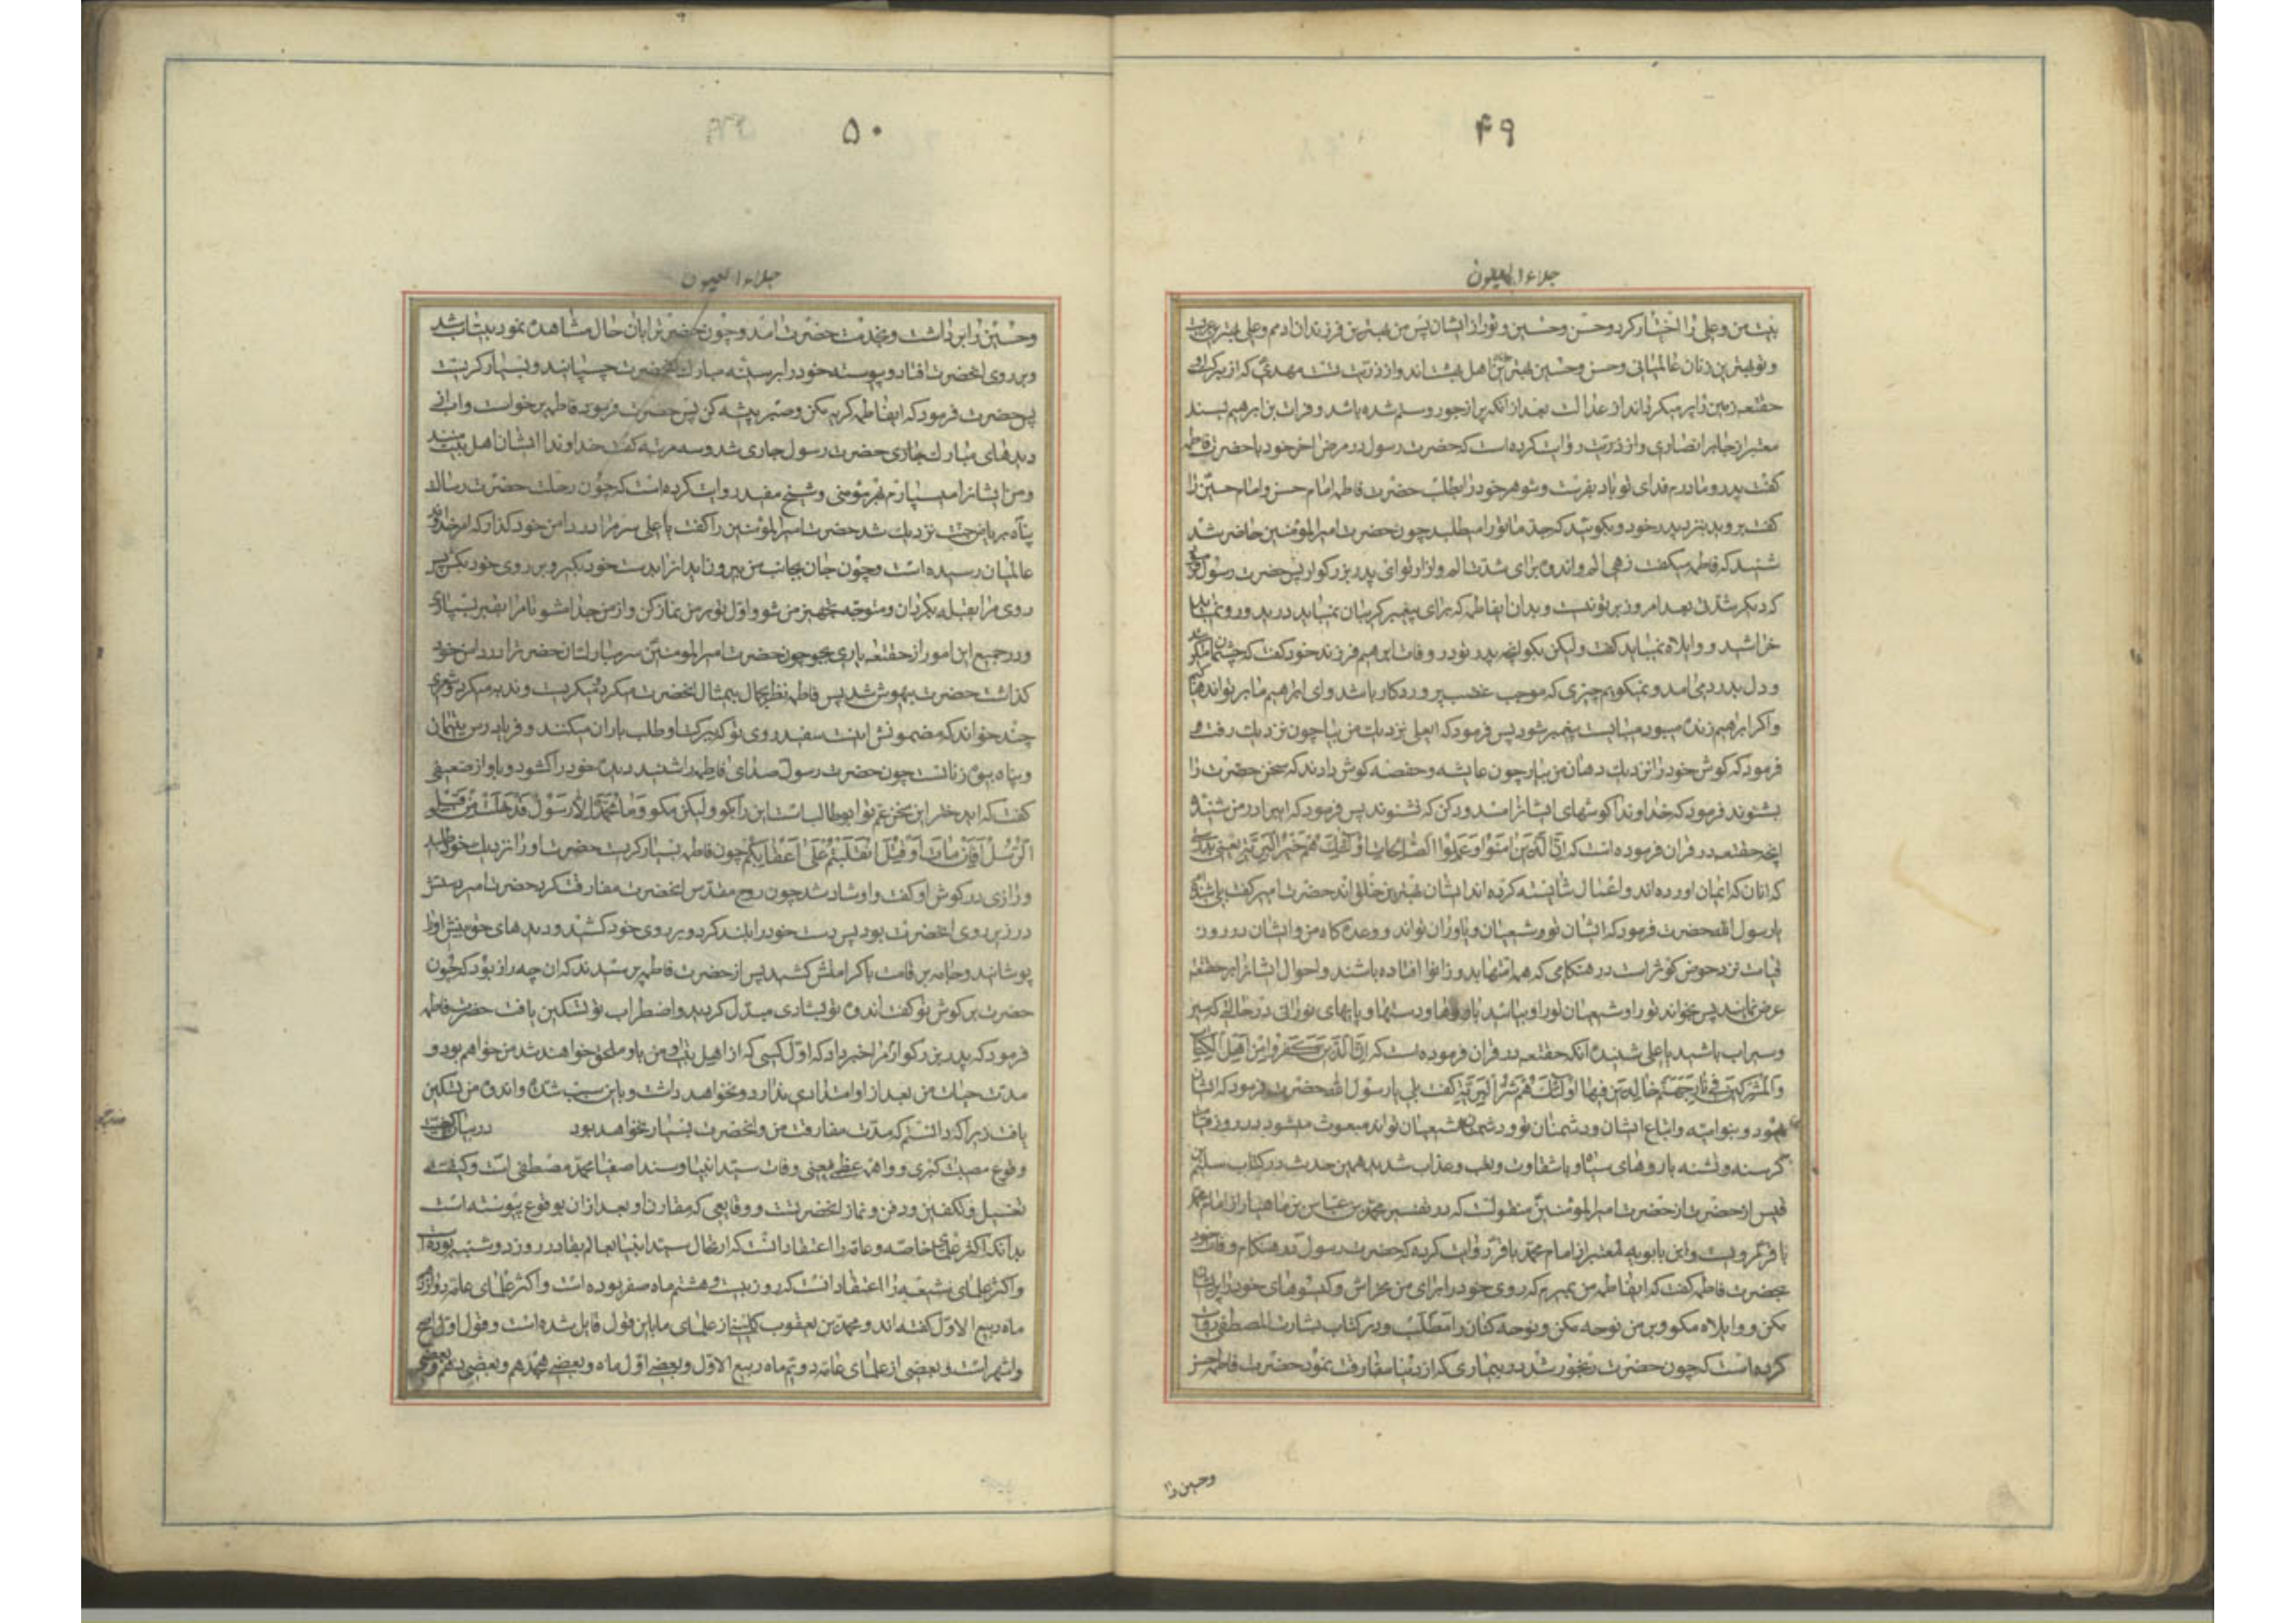 ۴۹
جلاء العیون
بیت من و علی را اختیار کرد و حسن و حسین و تو را از ایشان پس من بهترین فرزندان ادمم و علی بهترین عرب
و تو بهترین زنان عالمیانی و حسن و حسین بهترین اهل بهشت‌اند و از ذریت تست مهدی که از برکت او
حقتعه زمین را پر میکرداند از عدالت بعد از انکه پر از جور و ستم شده باشد و فرات بن ابرهیم بسند
معتبر از جابر انصاری روایت کرده است که حضرت رسول در مرض اخر خود با حضرت فاطمه
کفت پدر و مادرم فدای تو باد بفرست و شوهر خود را بطلب حضرت فاطمه امام حسن و امام حسین را
کفت بروید بنزد پدر خود و بکوئید که جد ما تو را میطلبد چون حضرت امیر المؤمنین حاضر شد
شنید که فاطمه میکفت زهی الم و اندوه برای شدت الم و ازار تو ای پدر بزرکوار پس حضرت رسول
که دیکر شدتی بعد امروز بر تو نیست و بدان ایفاطمه که برای پیغمبر کریبان نمیباید درید و رو نمیباید
خراشید و واویلاه نمیباید کفت ولیکن بکو انچه پدر تو در وفات ابرهیم فرزند خود کفت که چشمان
و دل بدرد می امد و نمیکویم چیزی که موجب غضب پروردکار باشد و ای ابراهیم ما بر تو اندوهناکیم
و اکر ابراهیم زنده میبود میبایست پیغمبر شود پس فرمود که ایعلی نزدیک من بیا چون نزدیک رفت
فرمود که کوش خود را نزدیک دهان من بیار چون عایشه و حفصه کوش دادند که سخن حضرت را
بشنوند فرمود که خداوندا کوشهای ایشانرا مسدود کن که نشنوند پس فرمود که ایبرادر من شنیدی
انچه حقتعه در قران فرموده است که اِنَّ الَّذینَ امَنُوا وَ عَمِلُوا الصّالِحاتِ اُولئِکَ هُمْ خَیْرُ الْبَرِیَّةِ یعنی بدرستی
که انان که ایمان اورده اند و اعمال شایسته کرده اند ایشان بهترین خلق اند حضرت امیر کفت بلی شنیدم
یا رسول الله حضرت فرمود که ایشان تو و شیعیان و یاوران تواند و وعده کاه من و ایشان در روز
قیامت نزد حوض کوثر است در هنکامی که همه امتها بدو زانوا افتاده باشند و احوال ایشانرا بر حقتعه
عرض نمایند پس بخواند تو را و شیعیان تو را و بیائید با روها و دستها و پاهای نورانی در حالتی که سیر
و سیراب باشید یا علی شنیدهٔ انکه حقتعه در قران فرموده است که اِنَّ الَّذینَ کَفَرُوا مِنْ اَهْلِ الْکِتابِ
وَ الْمُشْرِکینَ فی نارِ جَهَنَّمَ خالِدینَ فیها اُولئِکَ هُمْ شَرُّ الْبَرِیَّةِ کفت بلی یا رسول الله حضرت فرمود که ایشان
یهود و بنوامیه و اتباع ایشان و دشمنان تو و دشمنان شیعیان تواند مبعوث میشود در روز قیامت
کرسنه و تشنه با روهای سیاه و با شقاوت و تعب و عذاب شدید همین حدیث در کتاب سلیم بن
قیس از حضرت امیر المؤمنین منقولست که در تفسیر محمد بن عباس بن ماهیار از امام محمد
باقر مرویست و ابن بابویه بسند معتبر از امام محمد باقر روایت کرده که حضرت رسول در هنکام وفات خود
بحضرت فاطمه کفت که ایفاطمه من بمیرم که روی خود را برای من مخراش و کیسوهای خود را پریشان
مکن و واویلاه مکو و بر من نوحه مکن و نوحه کنان را مطلب و در کتاب بشارت المصطفی روایت
کرده است که چون حضرت رنجور شد در بیماری که از دنیا مفارقت نمود حضرت فاطمه حسن
و حسین را
۵۰
جلاء العیون
و حسین را برداشت و بخدمت حضرت امد و چون حضرت را بان حال مشاهده نمود بیتاب شد
و بر روی انحضرت افتاد و پوست خود را بر سینه مبارک انحضرت چسبانید و بسیار کریست
پس حضرت فرمود که ایفاطمه کریه مکن و صبر پیشه کن پس حضرت فرمود فاطمه برخواست و اب از
دیدهای مبارک حضرت رسول جاری شد و سه مرتبه کفت خداوندا ایشان اهل بیت منند
و من ایشانرا میسپارم بهر مؤمنی و شیخ مفید روایت کرده است که چون رحلت حضرت رسالت
پناه بریاض جنت نزدیک شد حضرت امیر المؤمنین را کفت یا علی سر مرا در دامن خود کذار که امر خداوند
عالمیان رسیده است و چون جان بجانب من بیرون اید انرا بدست خود بکیر و بر روی خود بکش پس
روی مرا بقبله بکردان و متوجه تجهیز من شو و اول تو بر من نماز کن و از من جدا مشو تا مرا بقبر بسپاری
و در جمیع این امور از حقتعه یاری بجو چون حضرت امیر المؤمنین سر مبارک انحضرت را در دامن خود
کذاشت حضرت بیهوش شد پس فاطمه نظر بجمال بیمثال انحضرت میکرد و میکریست و ندبه میکرد و شعری
چند خواند که مضمونش اینست سفید روی تو که ببرکت او طلب باران میکنند و فریادرس یتیمان
و پناه بیوه زنانست چون حضرت رسول صدای فاطمه را شنید دیدهٔ خود را کشود و باواز ضعیفی
کفت که ایدختر این سخن عم تو ابوطالب است این را مکو ولیکن مکو وَ ما مُحَمَّدٌ اِلّا رَسُولٌ قَدْ خَلَتْ مِنْ قَبْلِهِ
الرُّسُلُ اَفَاِنْ ماتَ اَوْ قُتِلَ انْقَلَبْتُمْ عَلی اَعْقابِکُمْ چون فاطمه بسیار کریست حضرت او را نزدیک خود طلبید
و رازی در کوش او کفت و او شاد شد چون روح مقدس انحضرت مفارقت کرد حضرت امیر دستش
در زیر روی انحضرت بود پس دست خود را بلند کرد و بر روی خود کشید و دیدهای حق بینش را
پوشانید و جامه بر قامت باکرامتش کشید پس از حضرت فاطمه پرسیدند که ان چه راز بود که چون
حضرت بر کوش تو کفت اندوه تو بشادی مبدل کردید و اضطراب تو تسکین یافت حضرت فاطمه
فرمود که پدر بزرکوارم مرا خبر داد که اول کسی که از اهل بیت من باو ملحق خواهند شد من خواهم بود و
مدت حیات من بعد از او امتدادی ندارد و نخواهد داشت و باین سبب شدت اندوه من تسکین
یافت زیرا که دانستم که مدت مفارقت من و انحضرت بسیار نخواهد بود در بیان کیفیت
وقوع مصیبت کبری و واهمه عظمی یعنی وفات سید انبیا و سند اصفیا محمد مصطفی است و کیفیت
تغسیل و تکفین و دفن و نماز انحضرتست و وقایعی که مقارن او بعد از ان بوقوع پیوسته است
بدانکه اکثر علمای خاصه و عامه را اعتقاد انست که ارتحال سید انبیا بعالم بقا در روز دوشنبه بوده است
و اکثر علمای شیعه را اعتقاد انست که روز بیست و هشتم ماه صفر بوده است و اکثر علمای عامه دوازدهم
ماه ربیع الاول کفته اند و محمد بن یعقوب کلینی از علمای ما باین قول قایل شده است و قول اول اصح
و اشهر است و بعضی از علمای عامه دویم ماه ربیع الاول و بعضی اول ماه و بعضی هیجدهم و بعضی دهم و بعضی